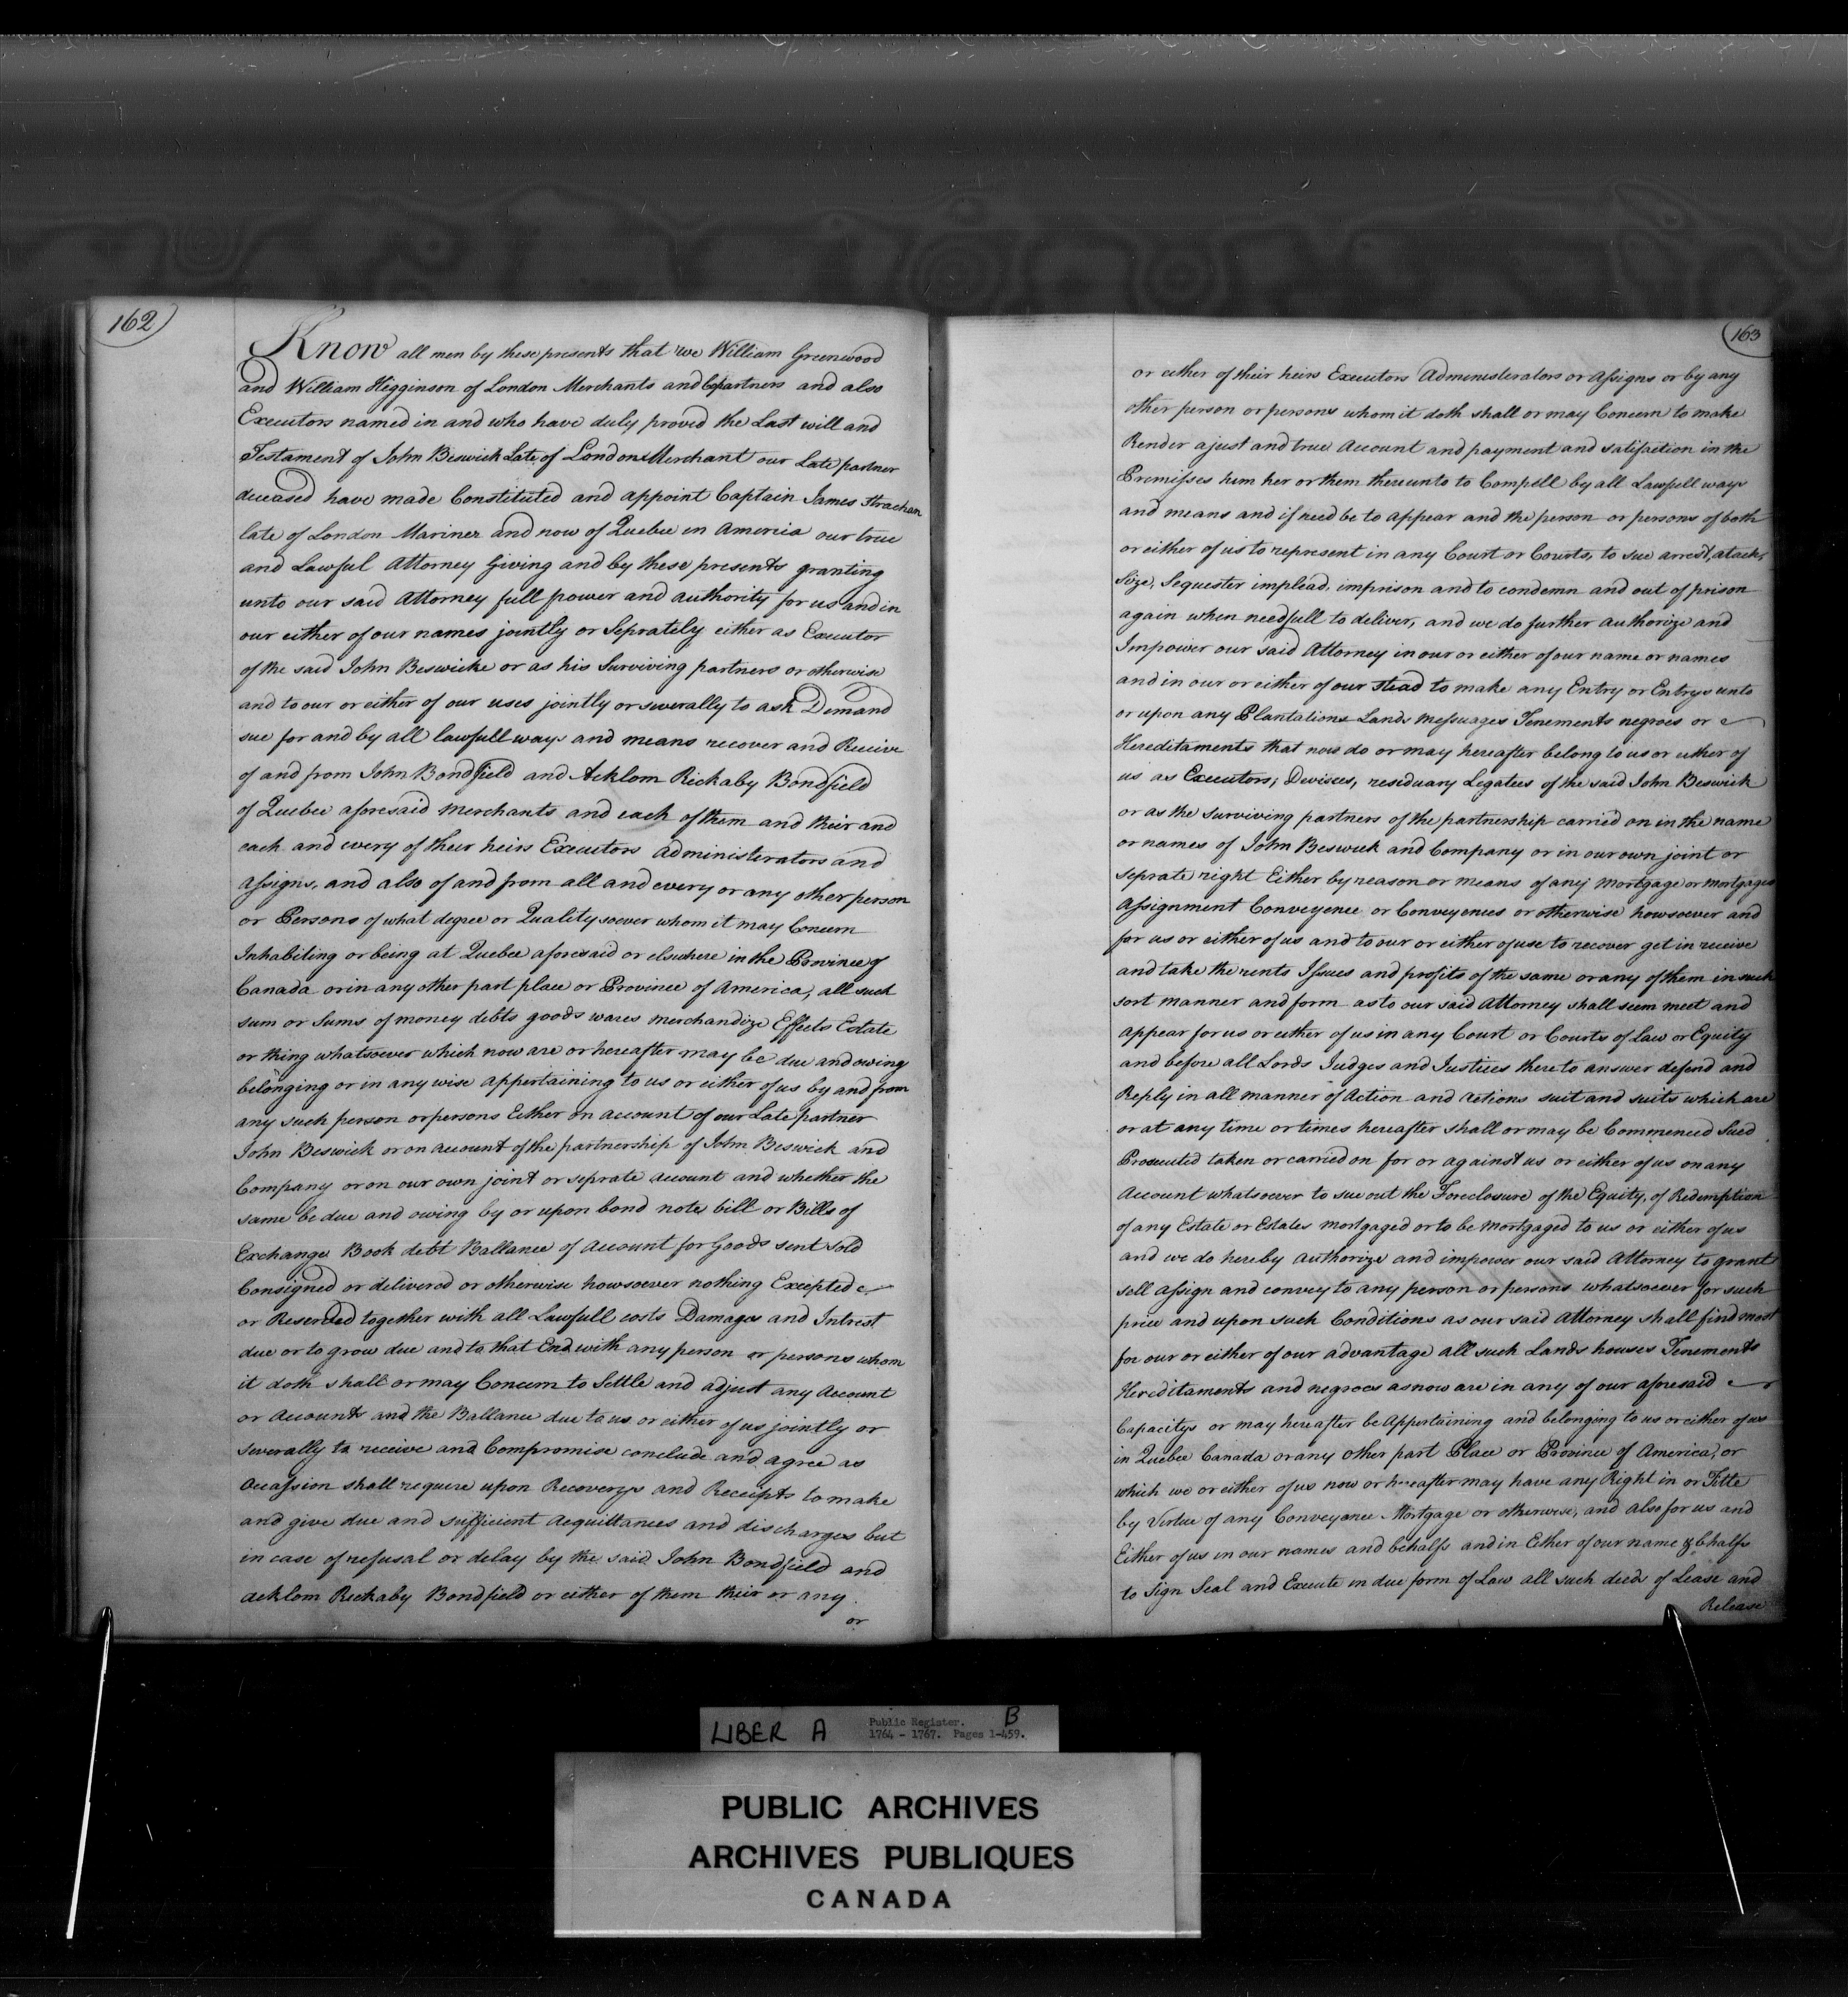 162
Know all men by these presents that we William Greenwood
and William Higginson of London Merchants and Copartners and also
Executors named in and who have duly proved the Last will and
Testament of John Beswick Late of London Merchant our Late partner
deceased have made Constituted and appoint Captain James Strachan
late of London Mariner and now of Quebec in America our true
and Lawful Attorney Giving and by these presents granting
unto our said Attorney full power and authority for us and in
our either of our names jointly or Seprately either as Executor
of the said John Beswicke or as his Surviving partners or otherwise
and to our or either of our uses jointly or severally to ask Demand
sue for and by all lawfull ways and means recover and Receive
of and from John Bondfield and Acklom Rickaby Bondfield
of Quebec aforesaid Merchants and each of them and their and
each and every of their heirs Executors Administerators and
Assigns, and also of and from all and every or any other person
or Persons of what degree or Quality soever whom it may Concern
Inhabiting or being at Quebec aforesaid or elsewhere in the Province of
Canada or in any other part place or Province of America, all such
sum or Sums of money debts goods wares merchandize Effects Estate
or thing whatsoever which now are or hereafter may be due and owing
belonging or in any wise appertaining to us or either of us by and from
any such person or persons Either on account of our Late partner
John Beswick or on account of the partnership of John Beswick and
Company or on our own joint or seprate account and whether the
same be due and owing by or upon bond note bill or Bills of
Exchange Book debt Ballance of Account for Goods sent Sold
Consigned or delivered or otherwise howsoever nothing Excepted
or Reserved together with all Lawfull costs Damages and Intrest
due or to grow due and to that End with any person or persons whom
it doth shall or may Concern to Settle and adjust any Account
or Accounts and the Ballance due to us or either of us jointly or
severally to receive and Compromise conclude and agree as
Occassion shall require upon Recoverys and Receipts to make
and give due and sufficient Acquittances and discharges but
in case of refusal or delay by the said John Bondfield and
Acklom Rickaby Bondfield or either of them their or any
or
163
or either of their heirs Executors Administerators or Assigns or by any
other person or persons whom it doth shall or may Concern to make
Render a just and true Account and payment and satisfaction in the
Premisses him her or them thereunto to Compell by all Lawfull ways
and means and if need be to appear and the person or persons of both
or either of us to represent in any Court or Courts, to sue arrest, atack,
Size, Sequester implead, imprison and to condemn and out of prison
again when needfull to deliver, and we do further authorize and
Impower our said Attorney in our or either of our name or names
and in our or either of our stead to make any Entry or Entrys unto
or upon any Plantations Lands Messuages Tenements negroes or
Hereditaments that now do or may hereafter belong to us or either of
us as Executors, Devisees, residuary Legatees of the said John Beswick
or as the surviving partners of the partnership carried on in the name
or names of John Beswick and Company or in our own joint or
seprate right Either by reason or means of any Mortgage or mortgages
Assignment Conveyence or Conveyences or otherwise howsoever and
for us or either of us and to our or either of use to recover get in receive
and take the rents Issues and profits of the same or any of them in such
sort manner and form as to our said Attorney shall seem meet and
appear for us or either of us in any Court or Courts of Law or Equity
and before all Lords Judges and Justices there to answer defend and
Reply in all manner of Action and Actions suit and suits which are
or at any time or times hereafter shall or may be Commenced Sued
Prosecuted taken or carried on for or against us or either of us on any
Account whatsoever to sue out the Foreclosure of the Equity, of Redemption
of any Estate or Estates mortgaged or to be mortgaged to us or either of us
and we do hereby authorize and impower our said Attorney to grant
sell assign and convey to any person or persons whatsoever for such
price and upon such Conditions as our said Attorney shall find most
for our or either of our advantage all such Lands houses Tenements
Hereditaments and negroes as now are in any of our aforesaid
Capacitys or may hereafter be Appertaining and belonging to us or either of us
in Quebec Canada or any other part Place or Province of America, or
which we or either of us now or hereafter may have any Right in or Title
by Virtue of any Conveyance Mortgage or otherwise, and also for us and
Either of us in our names and behalfs and in Either of our name & bhalfs
to Sign Seal and Execute in due form of Law all such deeds of Lease and
Release
LIBER A Public Register. B
1764 - 1767. Pages 1-459.
PUBLIC ARCHIVES
ARCHIVES PUBLIQUES
CANADA